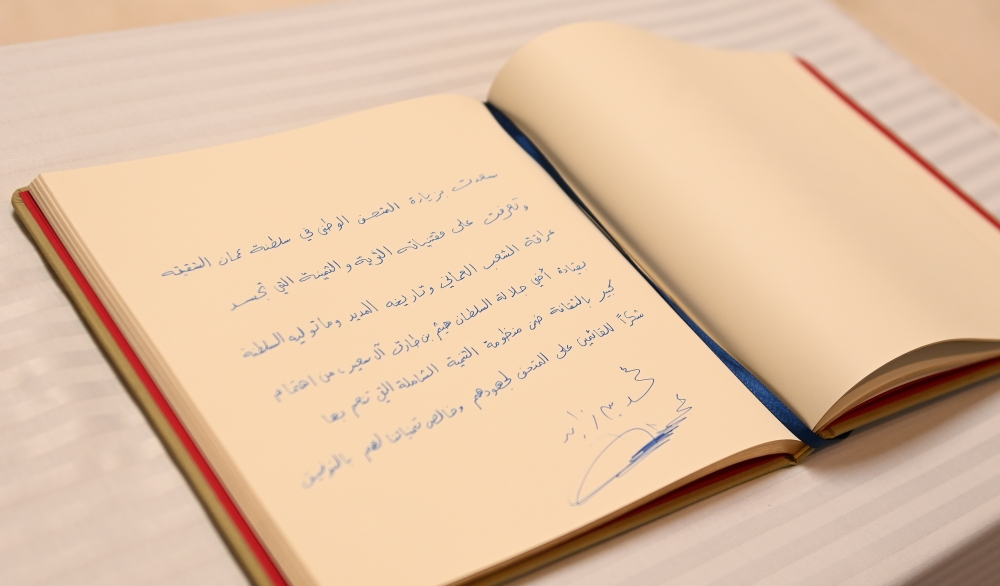 سعدت بزيارة المتحف الوطني في سلطنة عمان الشقيقة
وتعرفت على مقتنياته الثرية و الثمينة التي تجسد
عراقة الشعب العماني وتاريخه المديد وما توليه السلطنة
بقيادة أخي جلالة السلطان هيثم بن طارق آل سعيد، من اهتمام
كبير بالثقافة ضمن منظومة التنمية الشاملة التي تهم بها
شكراً للقائمين على المتحف لجهودهم وخالص تمنياتنا لهم بالتوفيق
محمد بن زايد